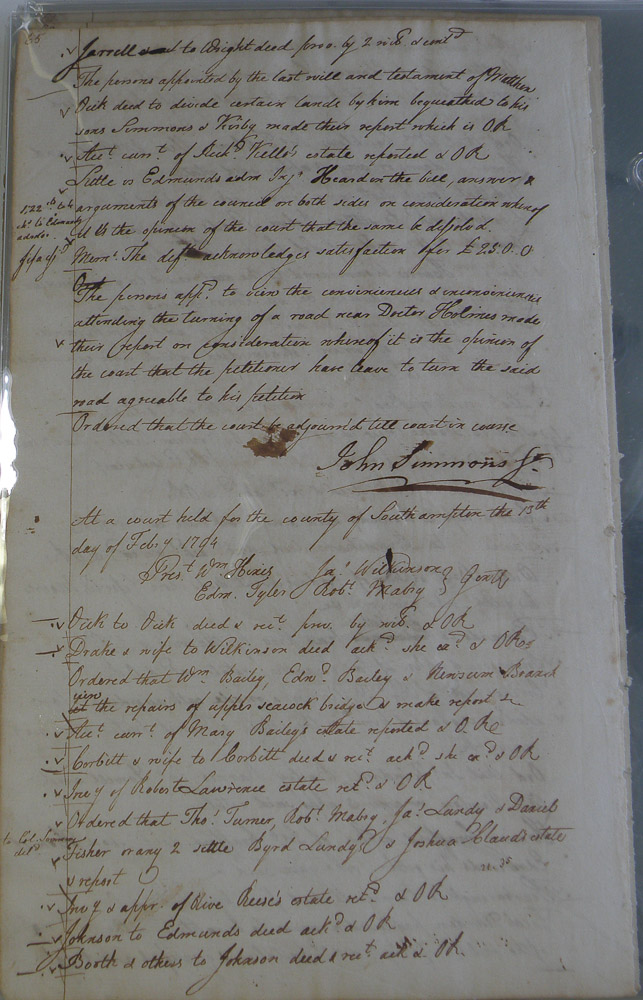 Jarrell to Wright deed prov. by 2 wits. & contd
The persons appointed by the last will and testament of Mathew
Dick deed to divide certain lands by him bequeathed to his
sons Simmons & Kirby made their report which is OR
Acct. currt. of Richd. Kello's estate reported & OR
Little vs Edmunds adm Inj. Heard on the bill, answer &
arguments of the councel on both sides on consideration where of
it is the opinion of the court that the same be disolvd.
Memo. The deft. acknowledges satisfaction for £25.0.0
The persons appd. to view the conveniences & inconveniences
attending the turning of a road near Doctor Holmes made
their report on consideration where of it is the opinion of
the court that the petitioner have leave to turn the said
road agreable to his petition
Ordered that the court be adjournd till court in course
John Simmons Jr.
At a court held for the county of Southampton the 13th
day of Feby. 1794
Prest. Wm. Hines Jas. Wilkinson
Edm. Tyler Robt. Mabry } Gentn
Dick to Dick deed & rect. prov. by wits. & OR
Drake & wife to Wilkinson deed ackd. she exd. & OR
Ordered that Wm. Bailey, Edwd. Bailey & Newsum Branch
view
the repairs of upper seacock bridge & make report &c
Acct. currt. of Mary Bailey's estate reported & O.R
Corbitt & wife to Corbitt deed & rect. ackd. she exd. & OR
Invy of Robert Lawrence estate retd. & OR
Ordered that Thos. Turner, Robt. Mabry, Jas. Lundy & Daniel
to Col. Simmons deld
Fisher or any 2 settle Byrd Lundy's & Joshua Claud's estate
& report
Invy & appr. of Olive Reese's estate retd. & OR
Johnson to Edmunds deed ackd. & OR
Booth & others to Johnson deed & rect. ack & OR.